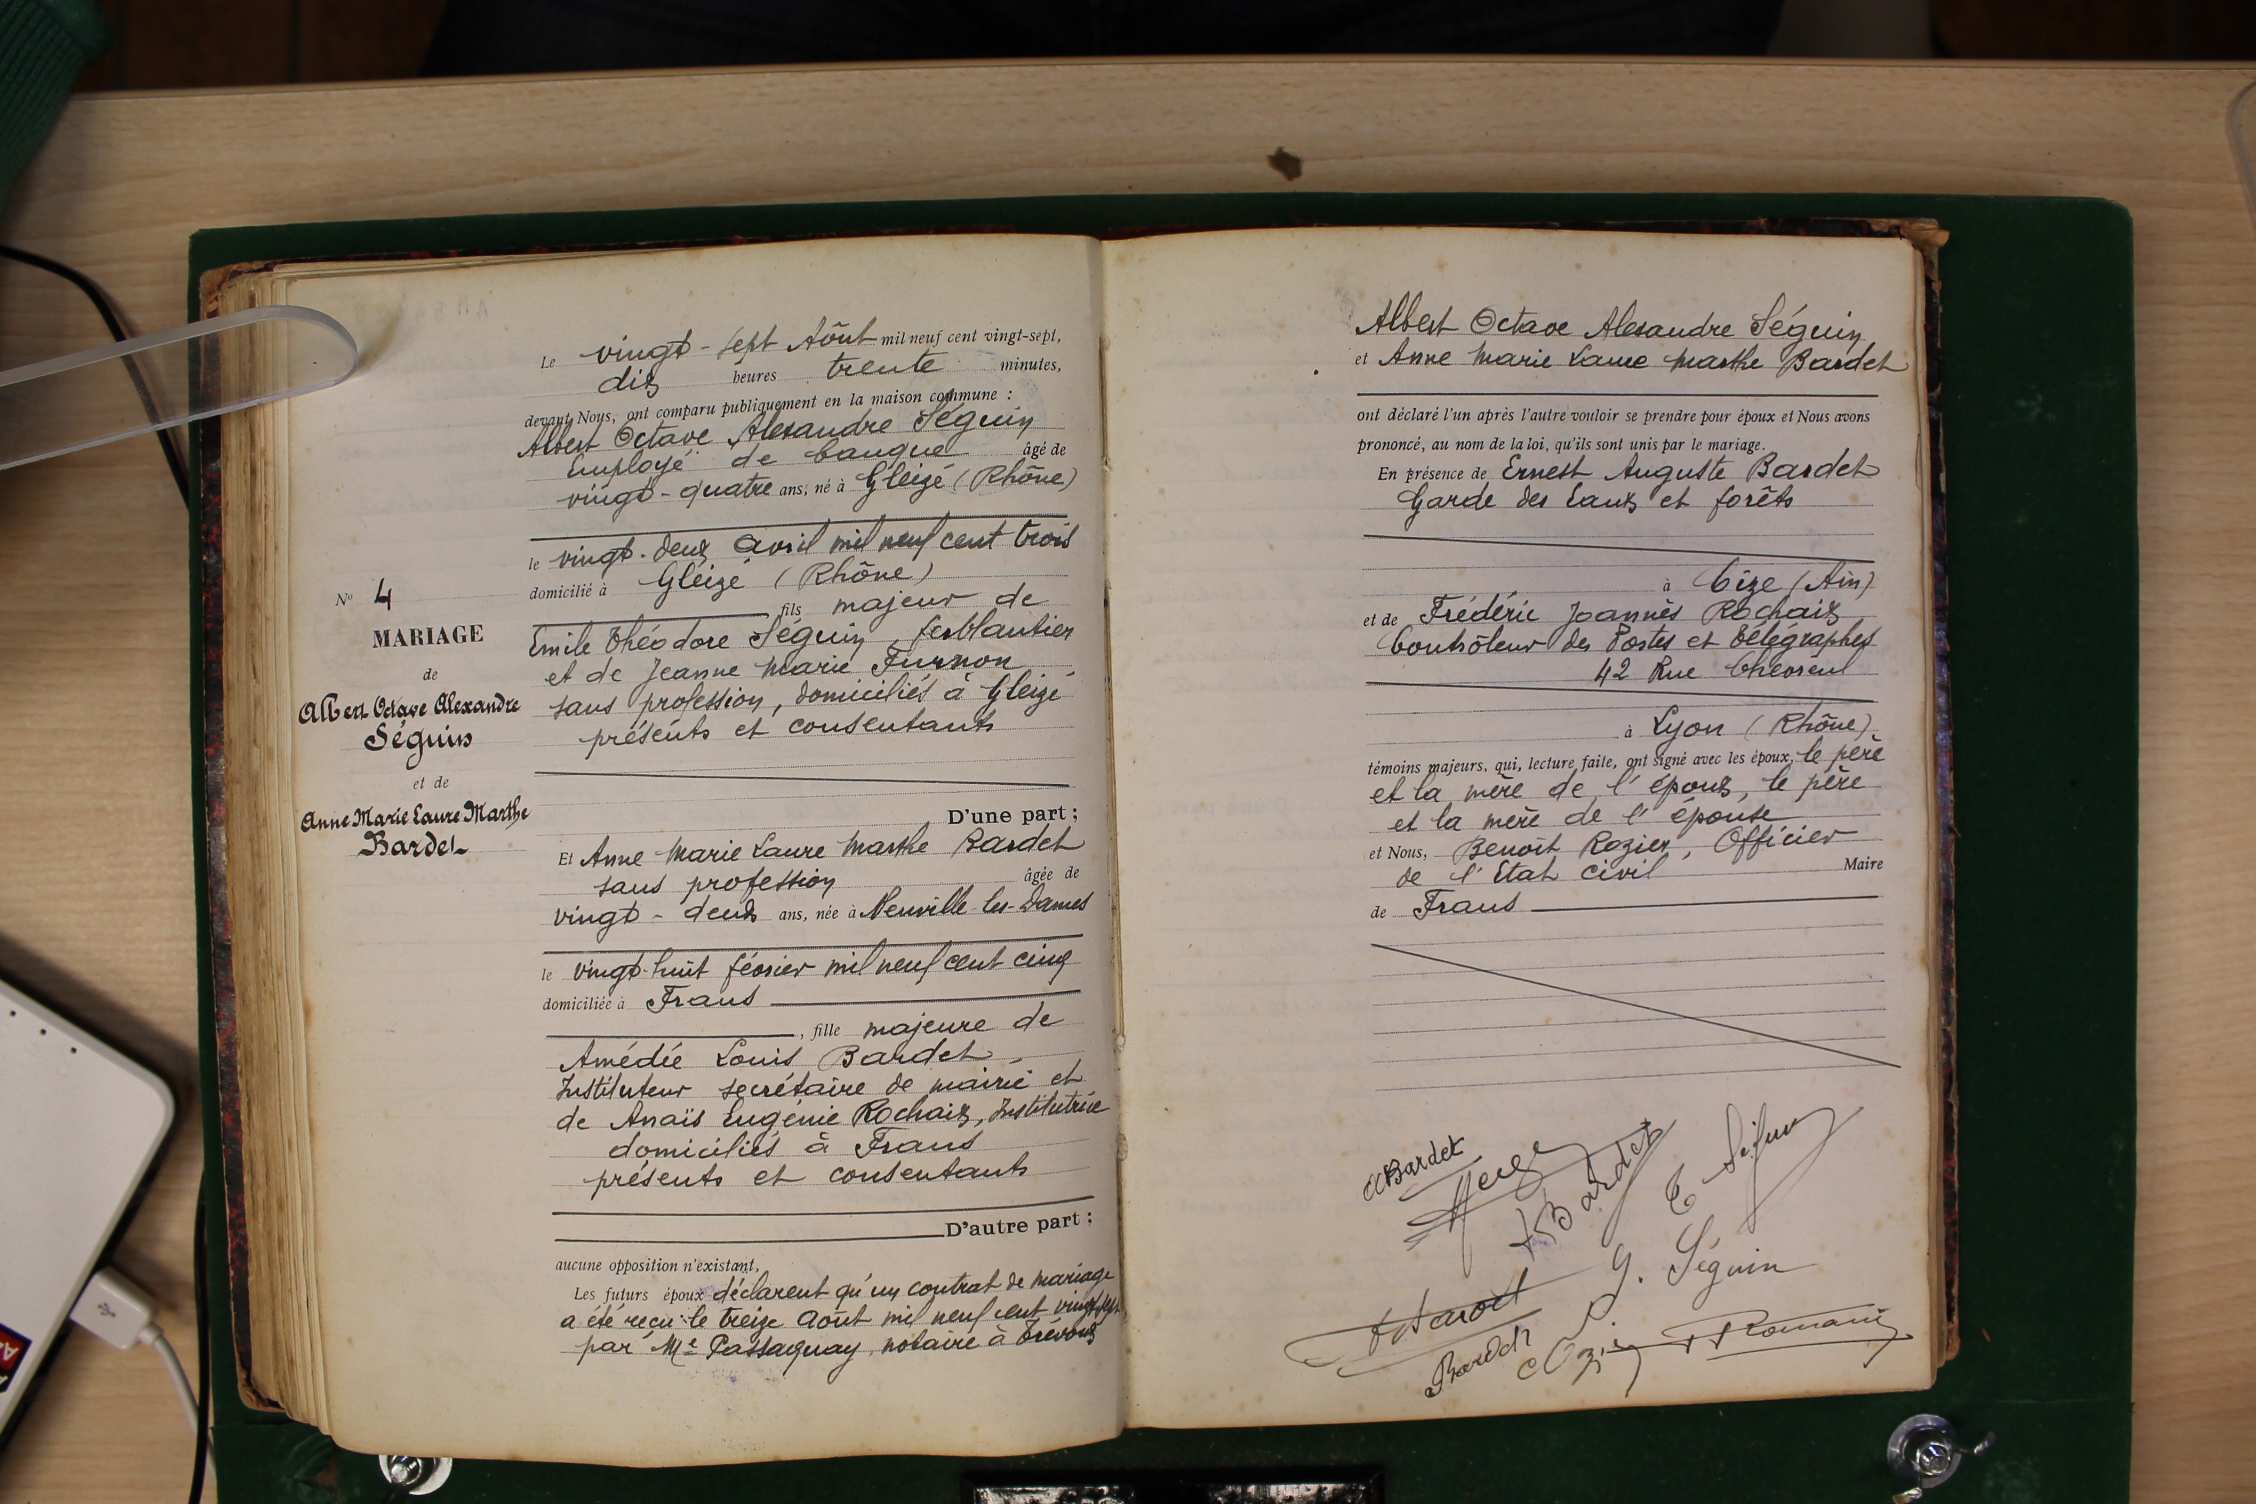 N° 4
MARIAGE
de
Albert Octave Alexandre
Séguin
et de
Anne Marie Laure Marthe
Bardet
Le vingt-sept Août mil neuf cent vingt-sept,
dix heures trente minutes,
devant Nous, ont comparu publiquement en la maison commune :
Albert Octave Alexandre Séguin
Employé de banque âgé de
vingt-quatre ans, né à Gleizé (Rhône)
le vingt-deux avril mil neuf cent trois
domicilié à Gleizé (Rhône)
fils majeur de
Emile Théodore Séguin, ferblantier
et de Jeanne Marie Furnon
sans profession, domiciliés à Gleizé
présents et consentants
D'une part ;
Et Anne Marie Laure Marthe Bardet
sans profession âgée de
vingt-deux ans, née à Neuville-les-Dames
le vingt-huit février mil neuf cent cinq
domiciliée à Frans
, fille majeure de
Amédée Louis Bardet,
Instituteur secrétaire de mairie et
de Anaïs Eugénie Rochaix, Institutrice
domiciliés à Frans
présents et consentants
D'autre part ;
aucune opposition n'existant,
Les futurs époux déclarent qu'un contrat de mariage
a été reçu le treize août mil neuf cent vingt-sept
par Me Passaquay, notaire à Trévoux
Albert Octave Alexandre Séguin
et Anne Marie Laure Marthe Bardet
ont déclaré l'un après l'autre vouloir se prendre pour époux et Nous avons
prononcé, au nom de la loi, qu'ils sont unis par le mariage.
En présence de Ernest Auguste Bardet
Garde des Eaux et forêts
à Cize (Ain)
et de Frédéric Joannès Rochaix
Contrôleur des Postes et Télégraphes
42 Rue Chevreul
à Lyon (Rhône)
témoins majeurs, qui, lecture faite, ont signé avec les époux, le père
et la mère de l'époux, le père
et la mère de l'épouse
et Nous, Benoît Rozier, Officier
de l'Etat civil Maire
de Frans
Bardet
Bardet
E Séguin
J. Séguin
Bardet